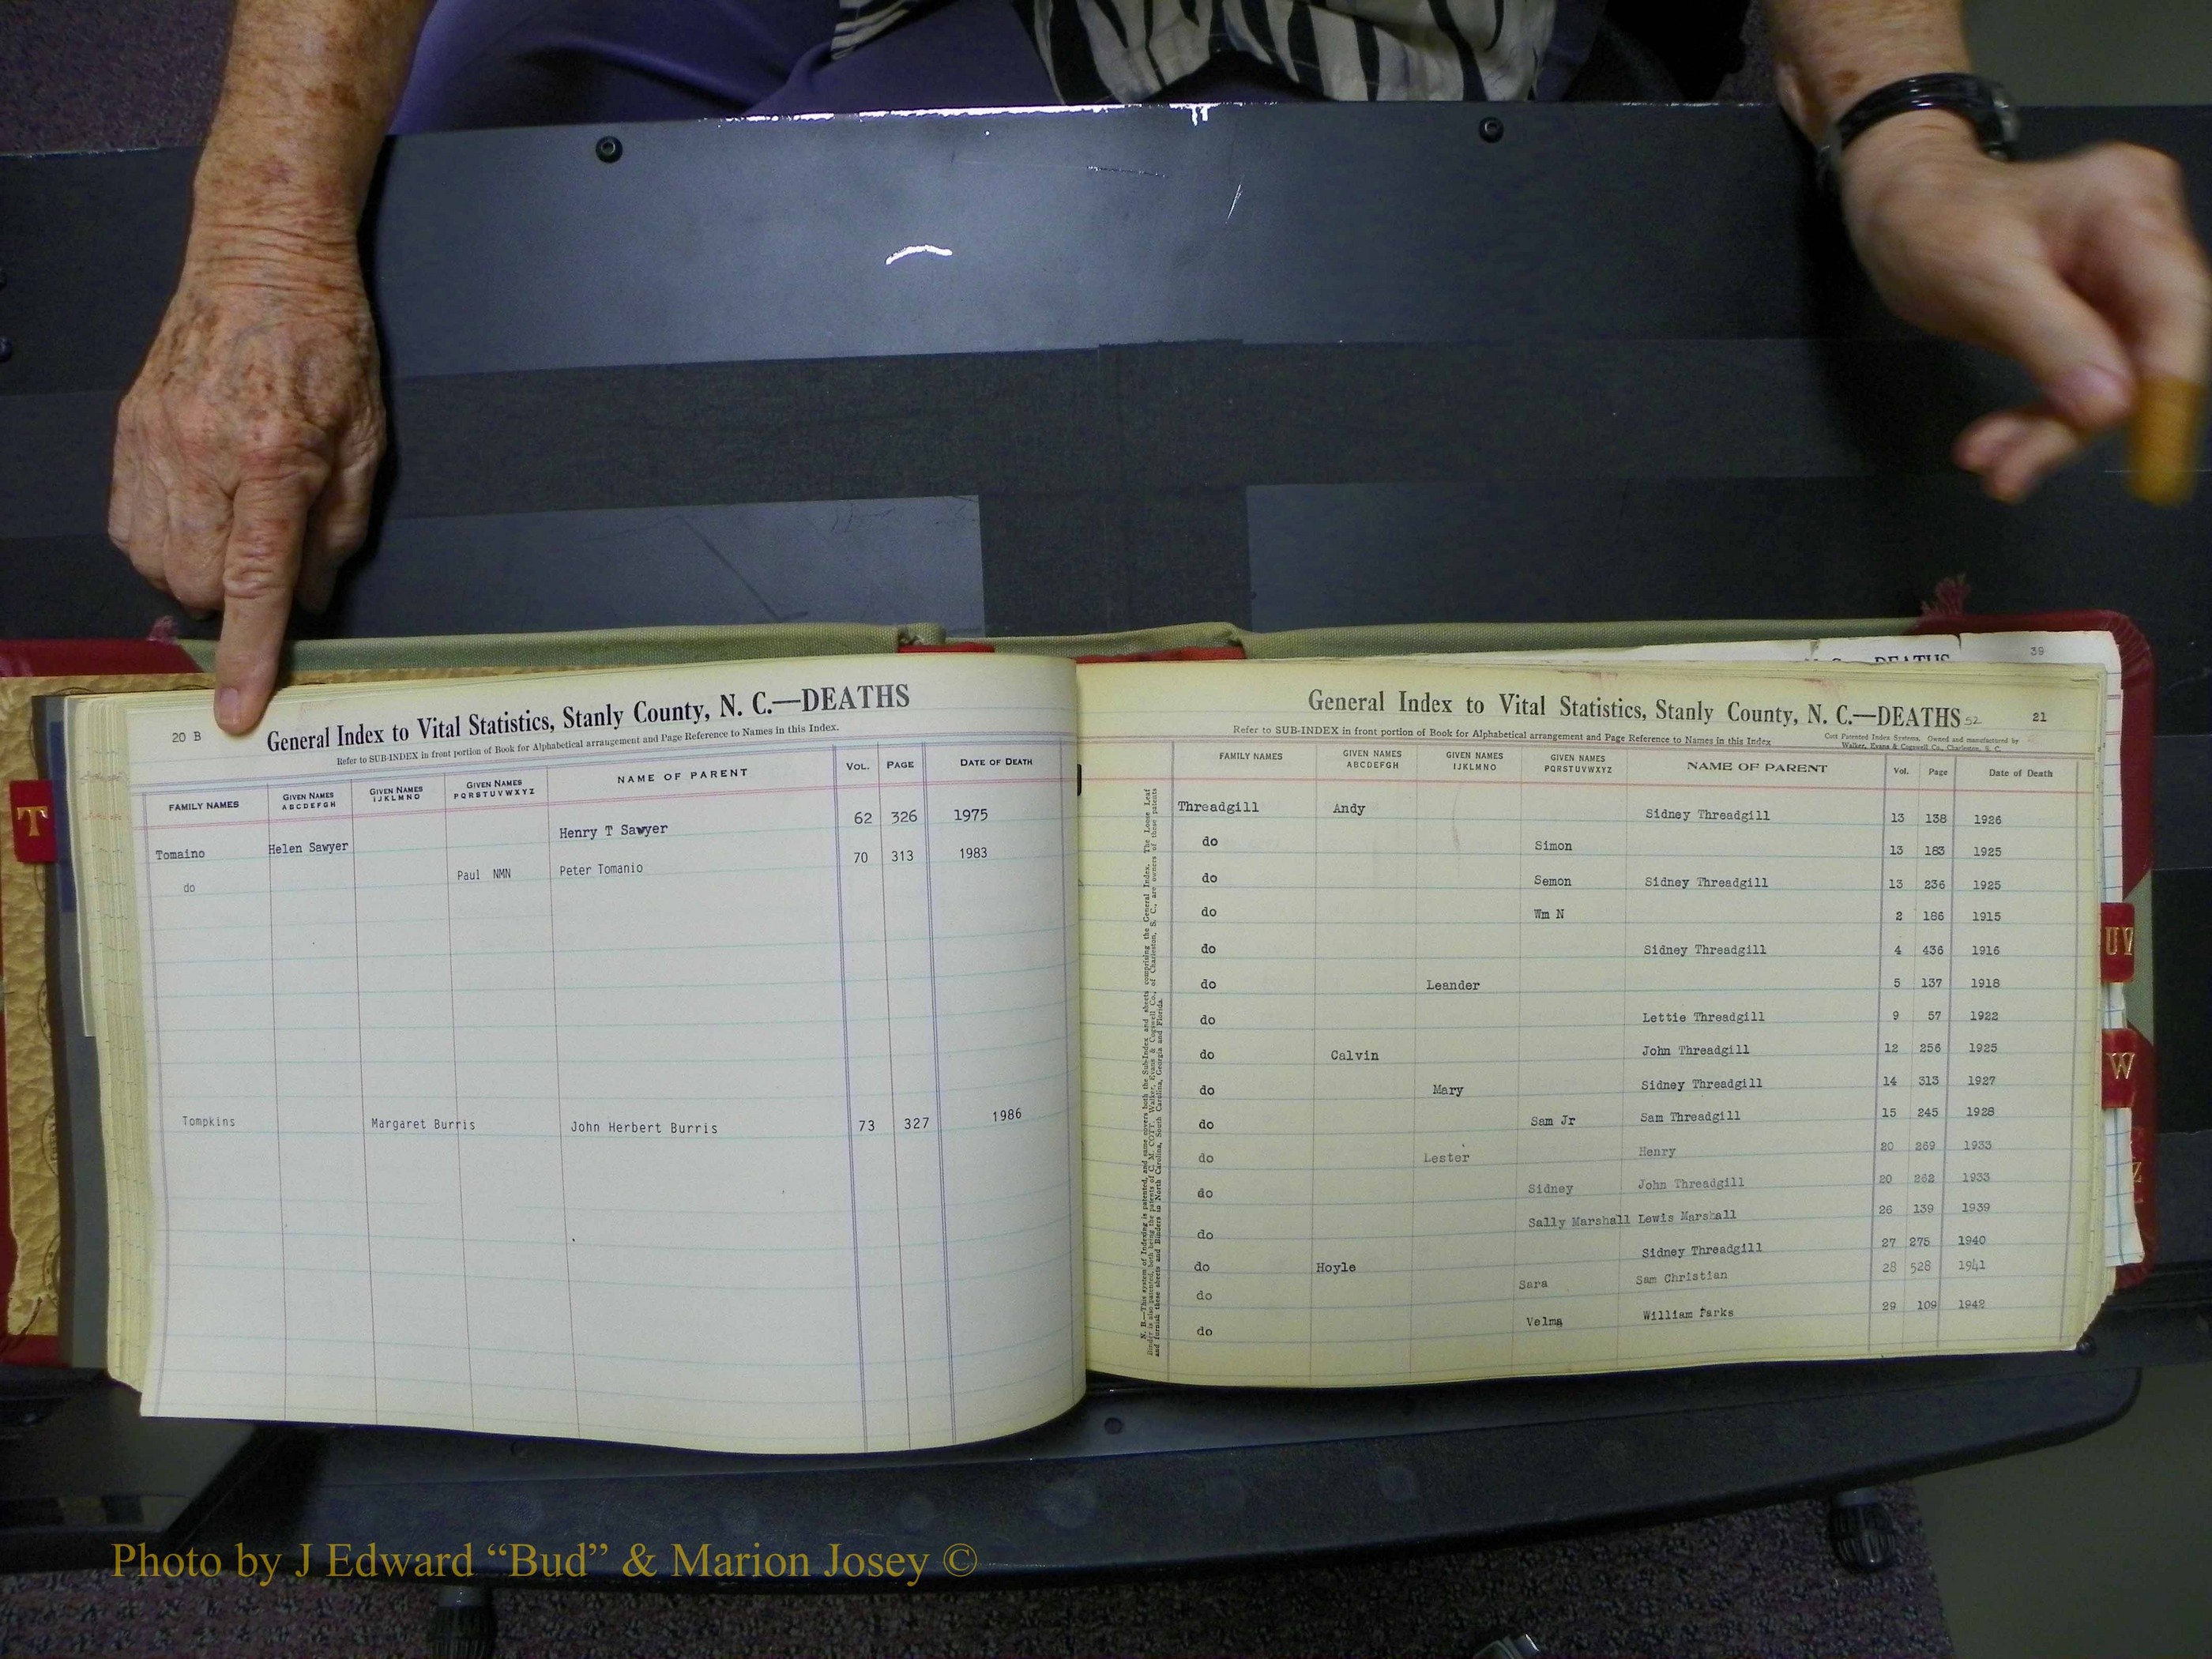 20 B
General Index to Vital Statistics, Stanly County, N. C.—DEATHS
Refer to SUB-INDEX in front portion of Book for Alphabetical arrangement and Page Reference to Names in this Index.
FAMILY NAMES GIVEN NAMES ABCDEFGH GIVEN NAMES IJKLMNO GIVEN NAMES PQRSTUVWXYZ NAME OF PARENT VOL. PAGE DATE OF DEATH
Tomaino Helen Sawyer Henry T Sawyer 62 326 1975
do Paul NMN Peter Tomanio 70 313 1983
Tompkins Margaret Burris John Herbert Burris 73 327 1986
T
39
DEATHS
General Index to Vital Statistics, Stanly County, N. C.—DEATHS 52 21
Refer to SUB-INDEX in front portion of Book for Alphabetical arrangement and Page Reference to Names in this Index
Cott Patented Index Systems, Owned and manufactured by
Walker, Evans & Cogswell Co., Charleston, S. C.
FAMILY NAMES GIVEN NAMES ABCDEFGH GIVEN NAMES IJKLMNO GIVEN NAMES PQRSTUVWXYZ NAME OF PARENT Vol. Page Date of Death
Threadgill Andy Sidney Threadgill 13 138 1926
do Simon 13 183 1925
do Semon Sidney Threadgill 13 236 1925
do Wm N 2 186 1915
do Sidney Threadgill 4 436 1916
do Leander 5 137 1918
do Lettie Threadgill 9 57 1922
do Calvin John Threadgill 12 256 1925
do Mary Sidney Threadgill 14 313 1927
do Sam Jr Sam Threadgill 15 245 1928
do Lester Henry 20 269 1933
do Sidney John Threadgill 20 262 1933
do Sally Marshall Lewis Marshall 26 139 1939
do Hoyle Sidney Threadgill 27 275 1940
do Sara Sam Christian 28 528 1941
do Velma William Parks 29 109 1942
N. B.—This system of Indexing is patented, and same covers both the Sub-Index and sheets comprising the General Index. The Loose Leaf
Binder is also patented, both being the patents of C. M. COTT. Walker, Evans & Cogswell Co., of Charleston, S. C., are owners of these patents
and furnish these sheets and Binders in North Carolina, South Carolina, Georgia and Florida.
UV
W
Z
Photo by J Edward “Bud” & Marion Josey ©